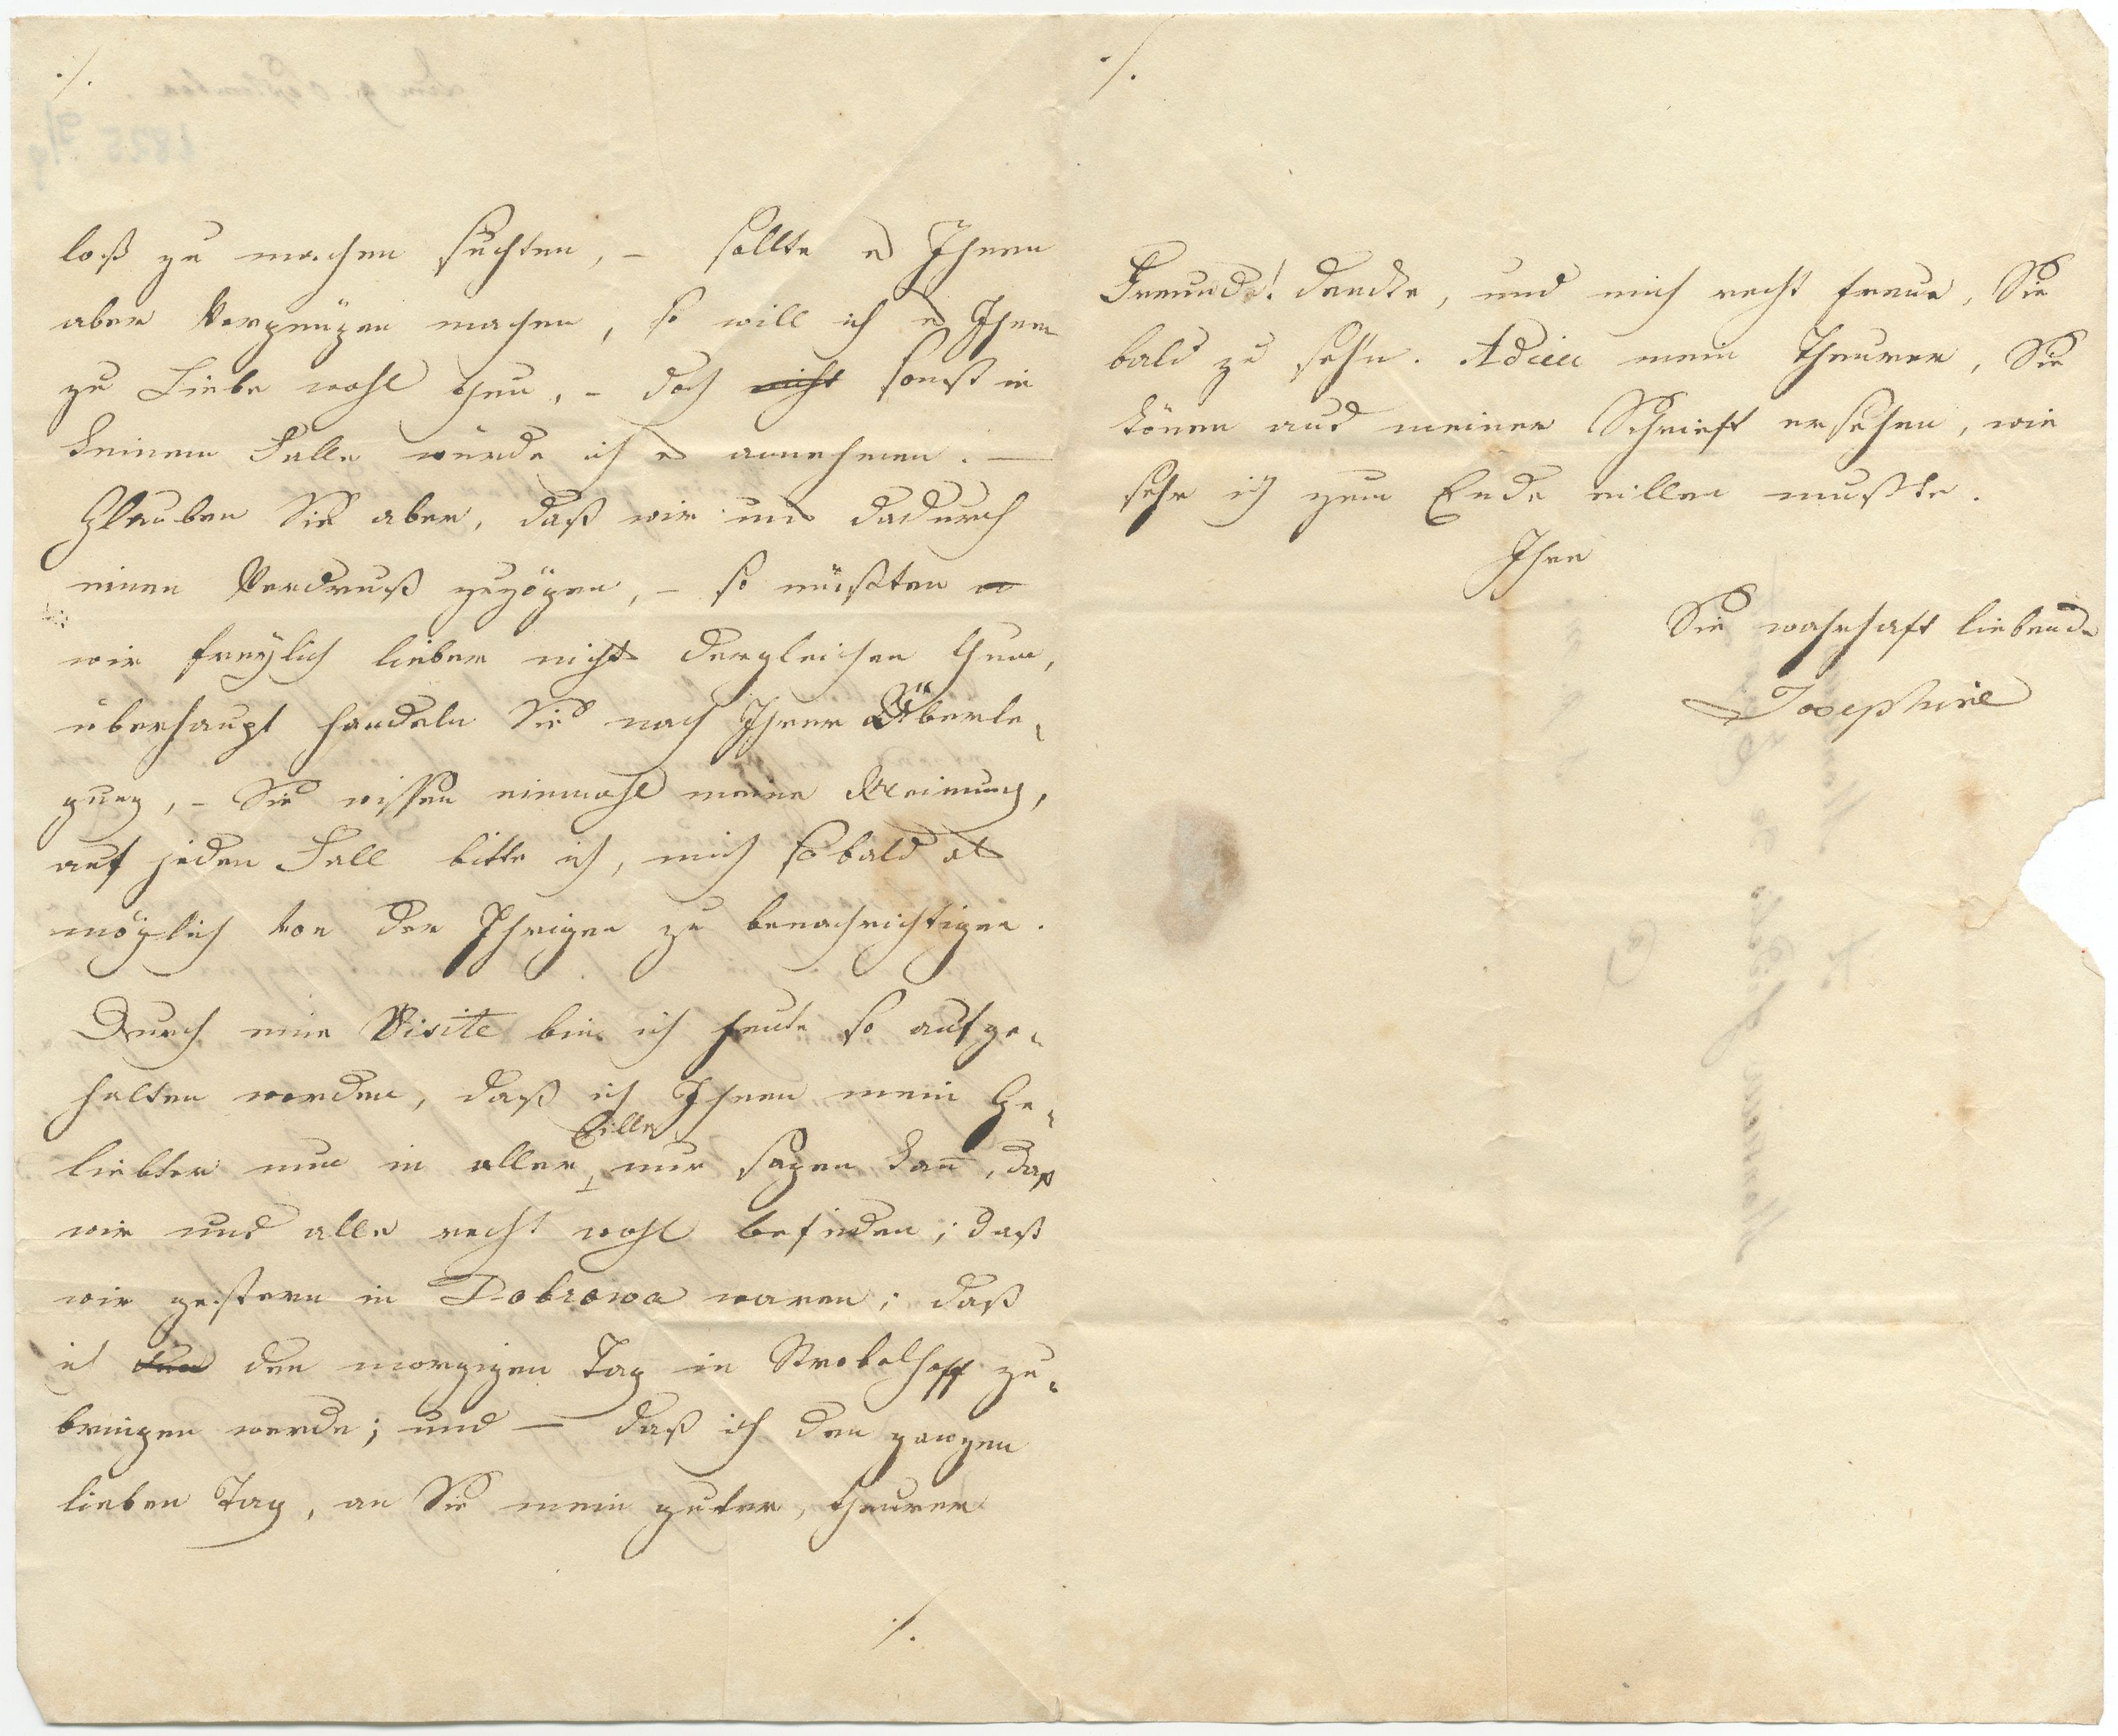 ./.
loß zu machen suchten, – sollte es Ihnen
aber Vergnügen machen, so will ich es Ihnen
zu Liebe wohl thun, – doch nicht sonst in
keinem Falle würde ich es annehmen. —
Glauben Sie aber, daß wir uns dadurch
einen Verdruß zuzögen, – so müßten
wir freÿlich lieber nichts dergleichen thun,
überhaupt handeln Sie nach Ihrer Überle-
gung, – Sie wissen einmahl meine Meinung,
auf jeden Fall bitte ich, mich so bald als
möglich von der Ihrigen zu benachrichtigen.
Durch eine Visite bin ich heute so aufge-
halten worden, daß ich Ihnen mein Ge-
liebter nun in aller Eille nur sagen kan̄, daß
wir uns alle recht wohl befinden; daß
wir gestern in Dobrowa waren; daß
ich den morgigen Tag in Strobelhoff zu-
bringen werde; und — daß ich den ganzen
lieben Tag, an Sie mein guter, theurer
./.
./.
Freund! dencke, und mich recht freue, Sie
bald zu seh'n. Adieu mein Theurer, Sie
kön̄en aus meiner Schrieft ersehen, wie
sehr ich zum Ende eillen mußte.
Ihre
Sie wahrhaft liebende
Josephine